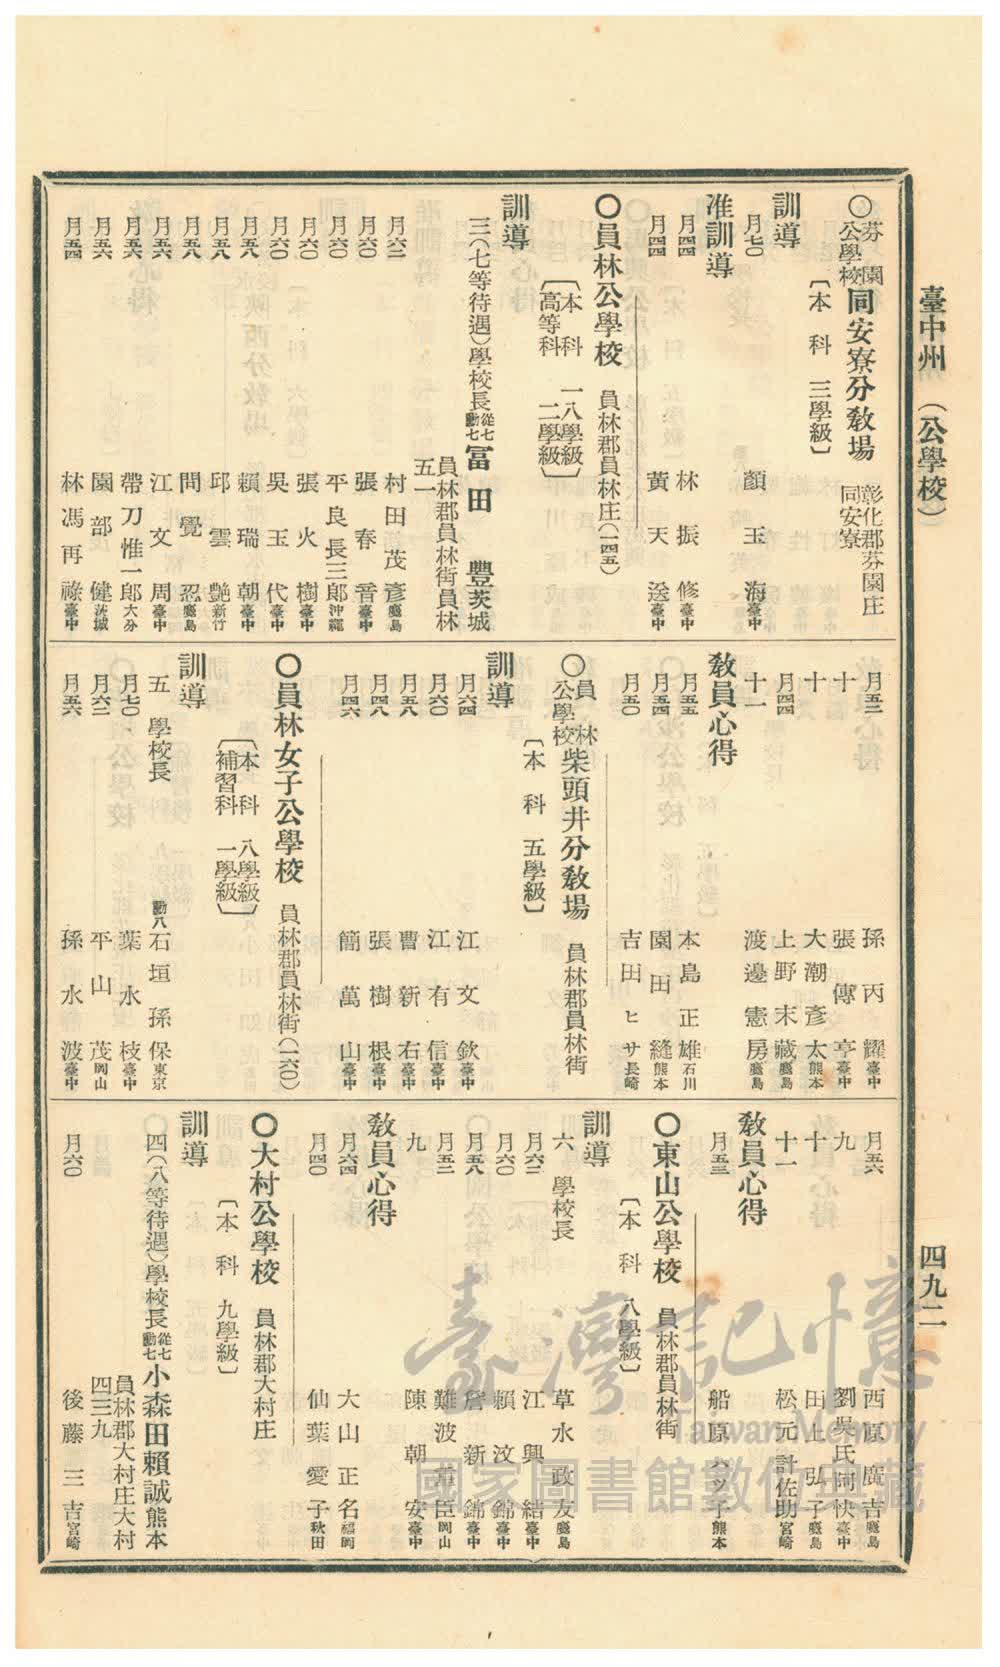 臺中州(公學校)
四九二
〇芬園公學校同安寮分敎場 彰化郡芬園庄同安寮
〔本科 三學級〕
訓導
月七〇 顏玉海 臺中
准訓導
月四四 林振修 臺中
月四四 黃天送 臺中
〇員林公學校 員林郡員林庄(一四五)
〔本科 一八學級〕
〔高等科 二學級〕
訓導
三(七等待遇)學校長 從七勳七 冨田豐 茨城
員林郡員林街員林五一
月六二 村田茂彥 鹿島
月六〇 張春晉 臺中
月六〇 平良長三郎 沖繩
月六〇 張火樹 臺中
月六〇 吳玉代 臺中
月五八 賴瑞朝 臺中
月五八 邱雲艷 新竹
月五八 問覺忍 鹿島
月五六 江文周 臺中
月五六 帶刀惟一郎 大分
月五六 園部健 茨城
月五四 林馮再祿 臺中
月五二 孫丙耀 臺中
十 張傳亨 臺中
十 大潮彥太 熊本
月四四 上野末藏 鹿島
十一 渡邊憲房 鹿島
敎員心得
月五五 本島正雄 石川
月五四 園田縫 熊本
月五〇 吉田ヒサ 長崎
〇員林公學校柴頭井分敎場 員林郡員林街
〔本科 五學級〕
訓導
月六四 江文欽 臺中
月六〇 江有信 臺中
月五八 曹新右 臺中
月四八 張樹根 臺中
月四六 簡萬山 臺中
〇員林女子公學校 員林郡員林街(一六〇)
〔本科 八學級〕
〔補習科 一學級〕
訓導
五 學校長 勳八 石垣孫保 東京
月七〇 葉水枝 臺中
月六二 平山茂 岡山
月五六 孫水波 臺中
月五六 西原廣吉 鹿島
九 劉吳氏阿快 臺中
十 田上弘子 鹿島
十一 松元計佐助 宮崎
敎員心得
月五三 船原ハツ子 熊本
〇東山公學校 員林郡員林街
〔本科 八學級〕
訓導
六 學校長 草水政友 鹿島
月六二 江興結 臺中
月六〇 賴汶錦 臺中
月五八 詹新錦 臺中
月五二 難波常臣 岡山
九 陳朝安 臺中
敎員心得
月六四 大山正名 福岡
月四〇 仙葉愛子 秋田
〇大村公學校 員林郡大村庄
〔本科 九學級〕
訓導
四(八等待遇)學校長 從七勳七 小森田賴誠 熊本
員林郡大村庄大村四三九
月六〇 後藤三吉 宮崎
臺灣記憶
Taiwan Memory
國家圖書館數位典藏